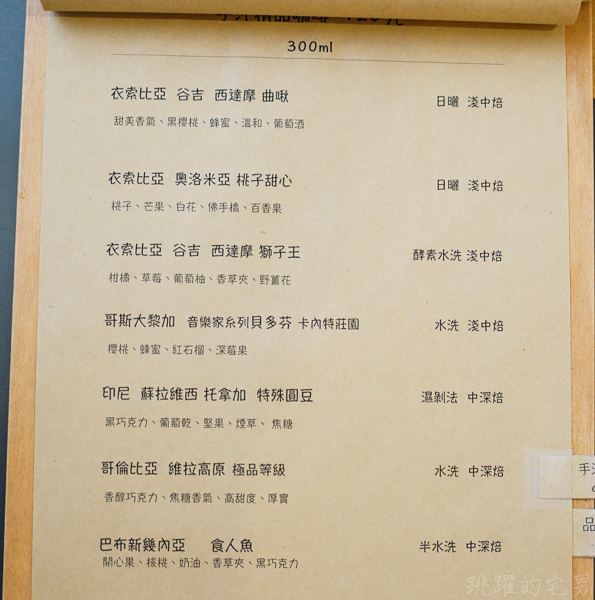 手沖精品咖啡 120元
300ml
衣索比亞 谷吉 西達摩 曲啾 日曬 淺中焙
甜美香氣、黑櫻桃、蜂蜜、溫和、葡萄酒
衣索比亞 奧洛米亞 桃子甜心 日曬 淺中焙
桃子、芒果、白花、佛手橘、百香果
衣索比亞 谷吉 西達摩 獅子王 酵素水洗 淺中焙
柑橘、草莓、葡萄柚、香草夾、野薑花
哥斯大黎加 音樂家系列貝多芬 卡內特莊園 水洗 淺中焙
櫻桃、蜂蜜、紅石榴、深莓果
印尼 蘇拉維西 托拿加 特殊圓豆 濕剝法 中深焙
黑巧克力、葡萄乾、堅果、煙草、焦糖
哥倫比亞 維拉高原 極品等級 水洗 中深焙
香醇巧克力、焦糖香氣、高甜度、厚實
手
品
巴布新幾內亞 食人魚 半水洗 中深焙
開心果、核桃、奶油、香草夾、黑巧克力
跳躍的宅男